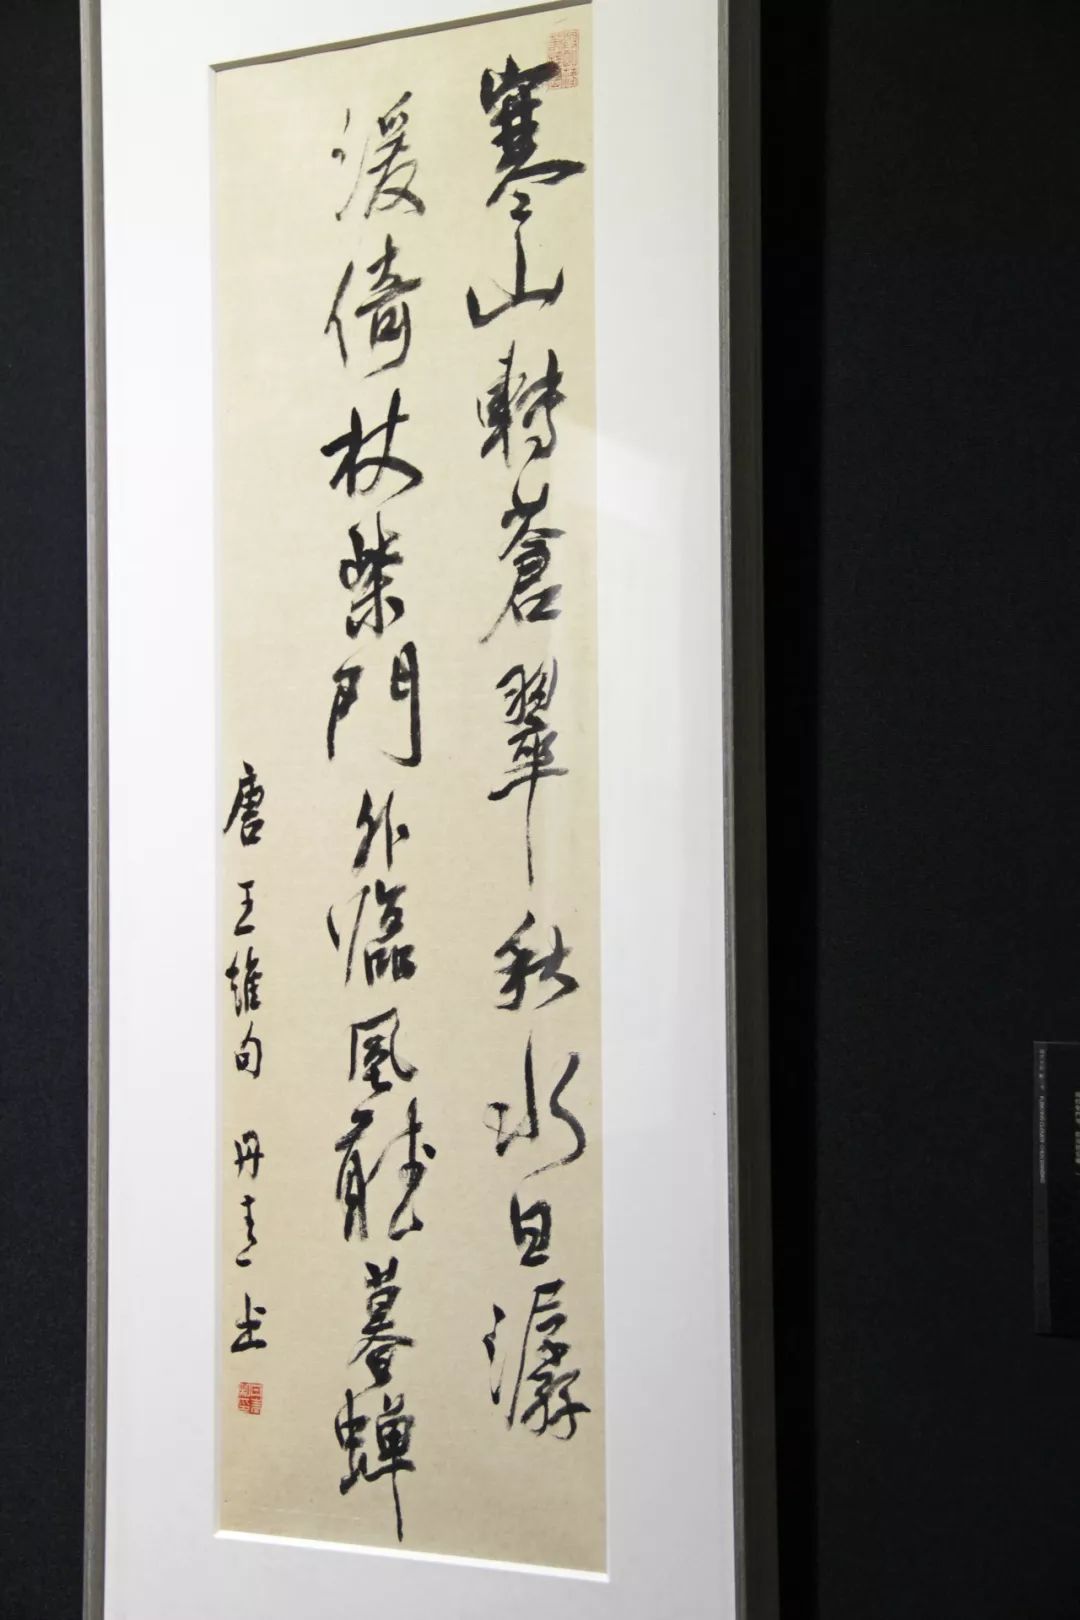 寒山轉蒼翠秋水日潺
湲倚杖柴門外臨風聽暮蟬
唐王維句丹青出